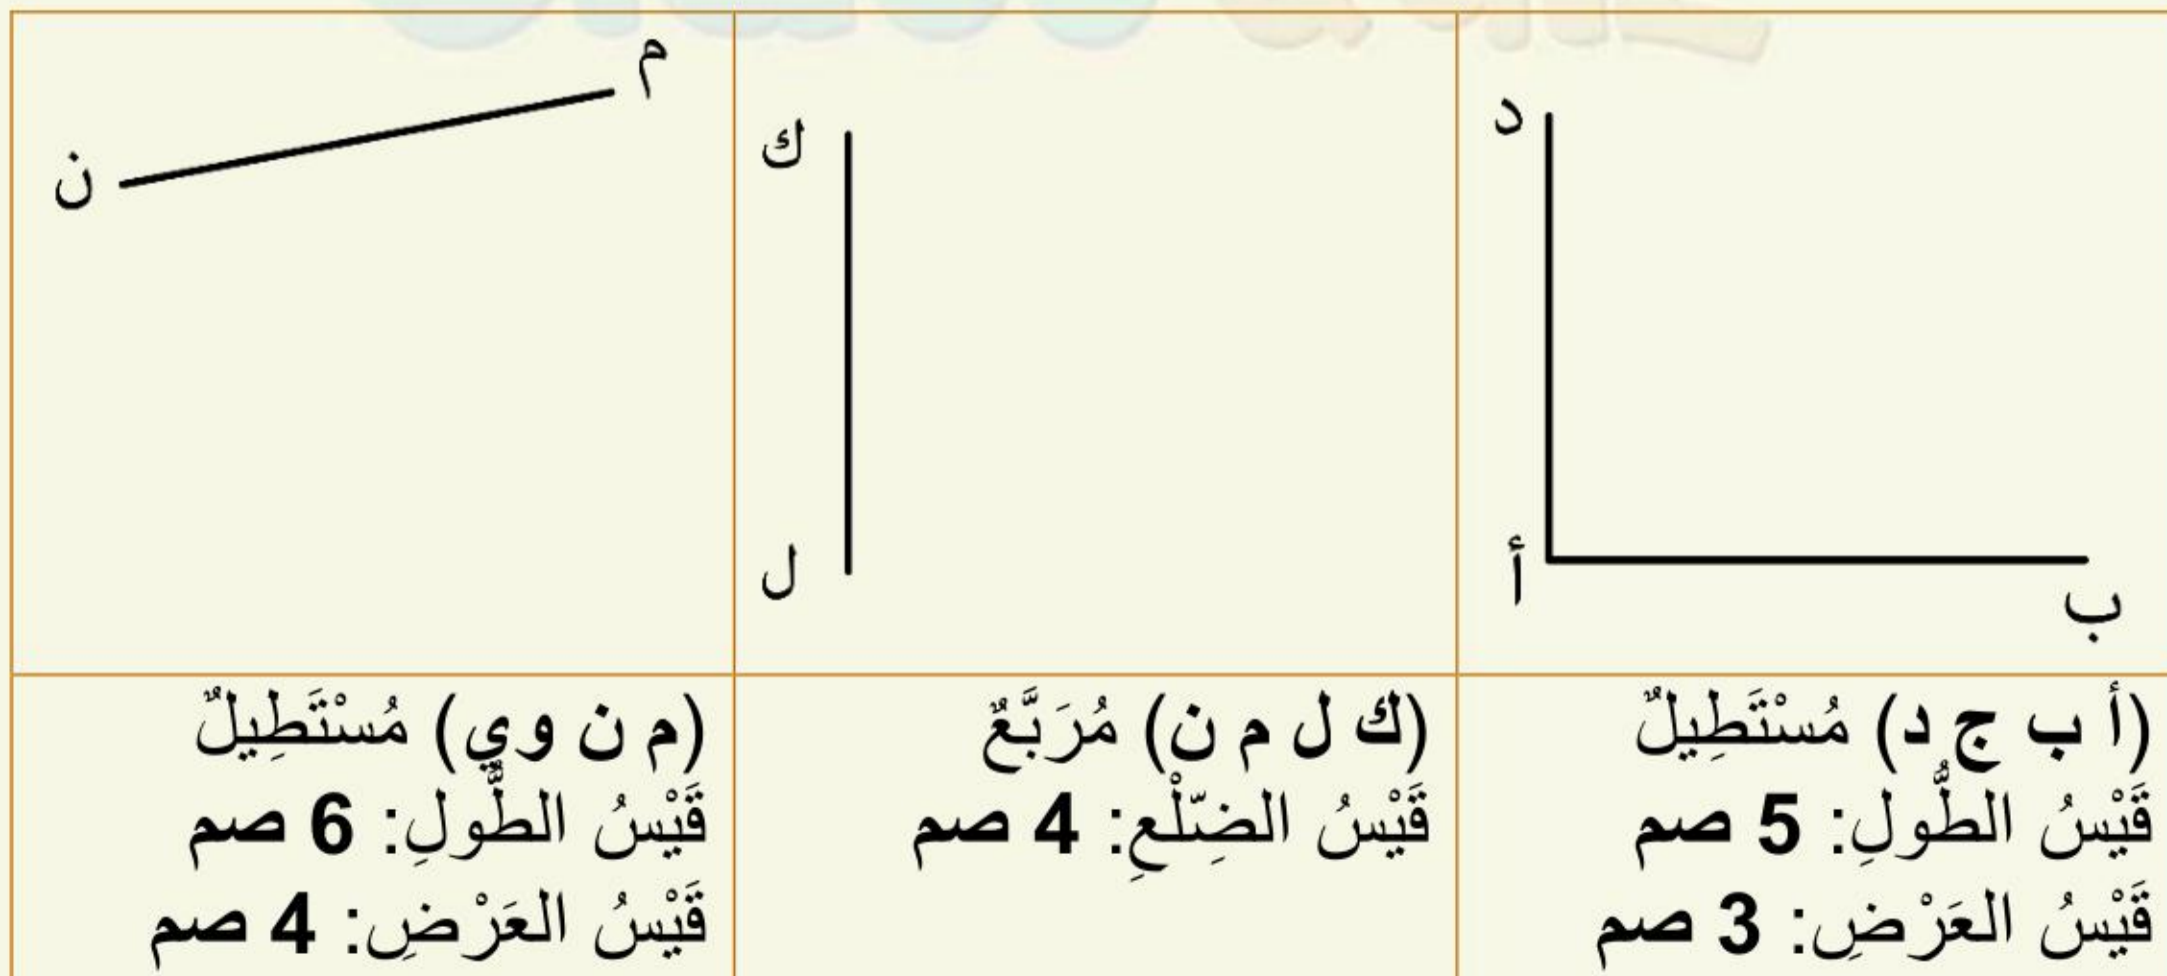 د
أ
ب
ك
ل
م
ن
(أ ب ج د) مُسْتَطِيلٌ
قَيْسُ الطُّولِ: 5 صم
قَيْسُ العَرْضِ: 3 صم
(ك ل م ن) مُرَبَّعٌ
قَيْسُ الضِّلْعِ: 4 صم
(م ن و ي) مُسْتَطِيلٌ
قَيْسُ الطُّولِ: 6 صم
قَيْسُ العَرْضِ: 4 صم